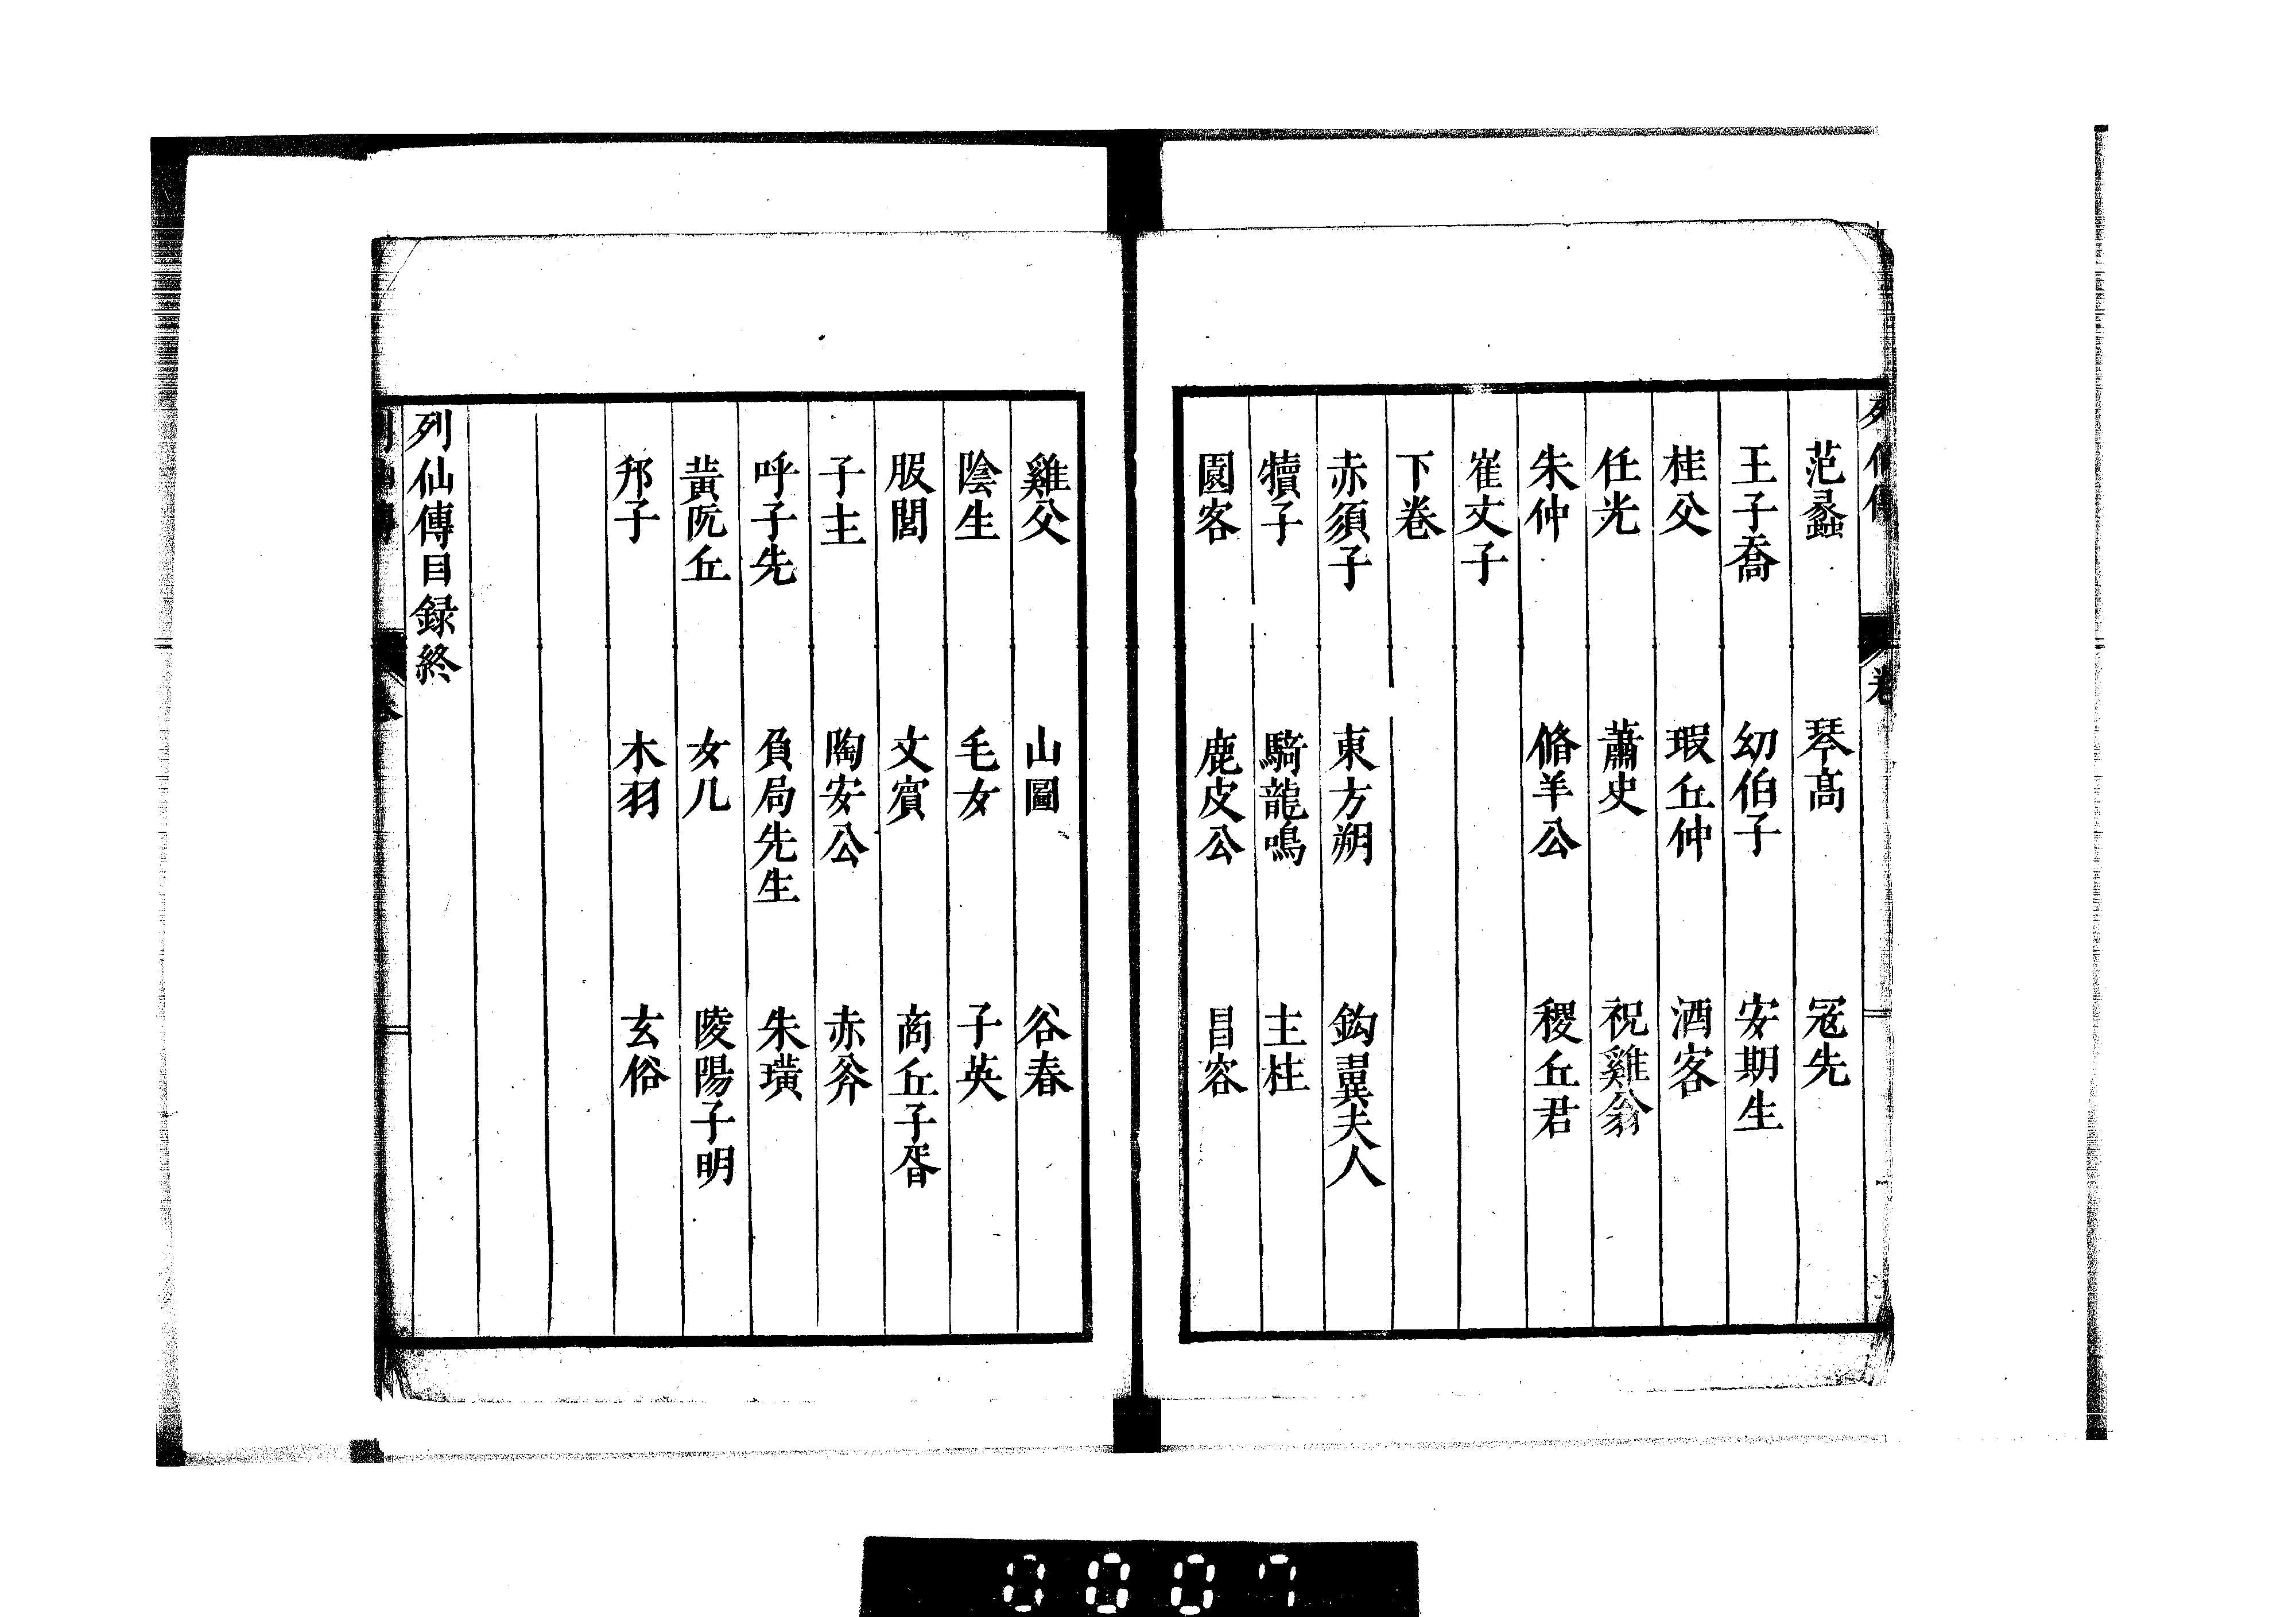 范蠡 琴高 冦先
王子喬 幼伯子 安期生
桂父 瑕丘仲 酒客
任光 蕭史 祝雞翁
朱仲 脩羊公 稷丘君
崔文子
下卷
赤須子 東方朔 鈎翼夫人
犢子 騎龍鳴 主柱
園客 鹿皮公 昌容
雞父 山圖 谷春
陰生 毛女 子英
服閭 文賓 商丘子胥
子主 陶安公 赤斧
呼子先 負局先生 朱璜
黃阮丘 女几 陵陽子明
邘子 木羽 玄俗
列仙傳目録終
0007